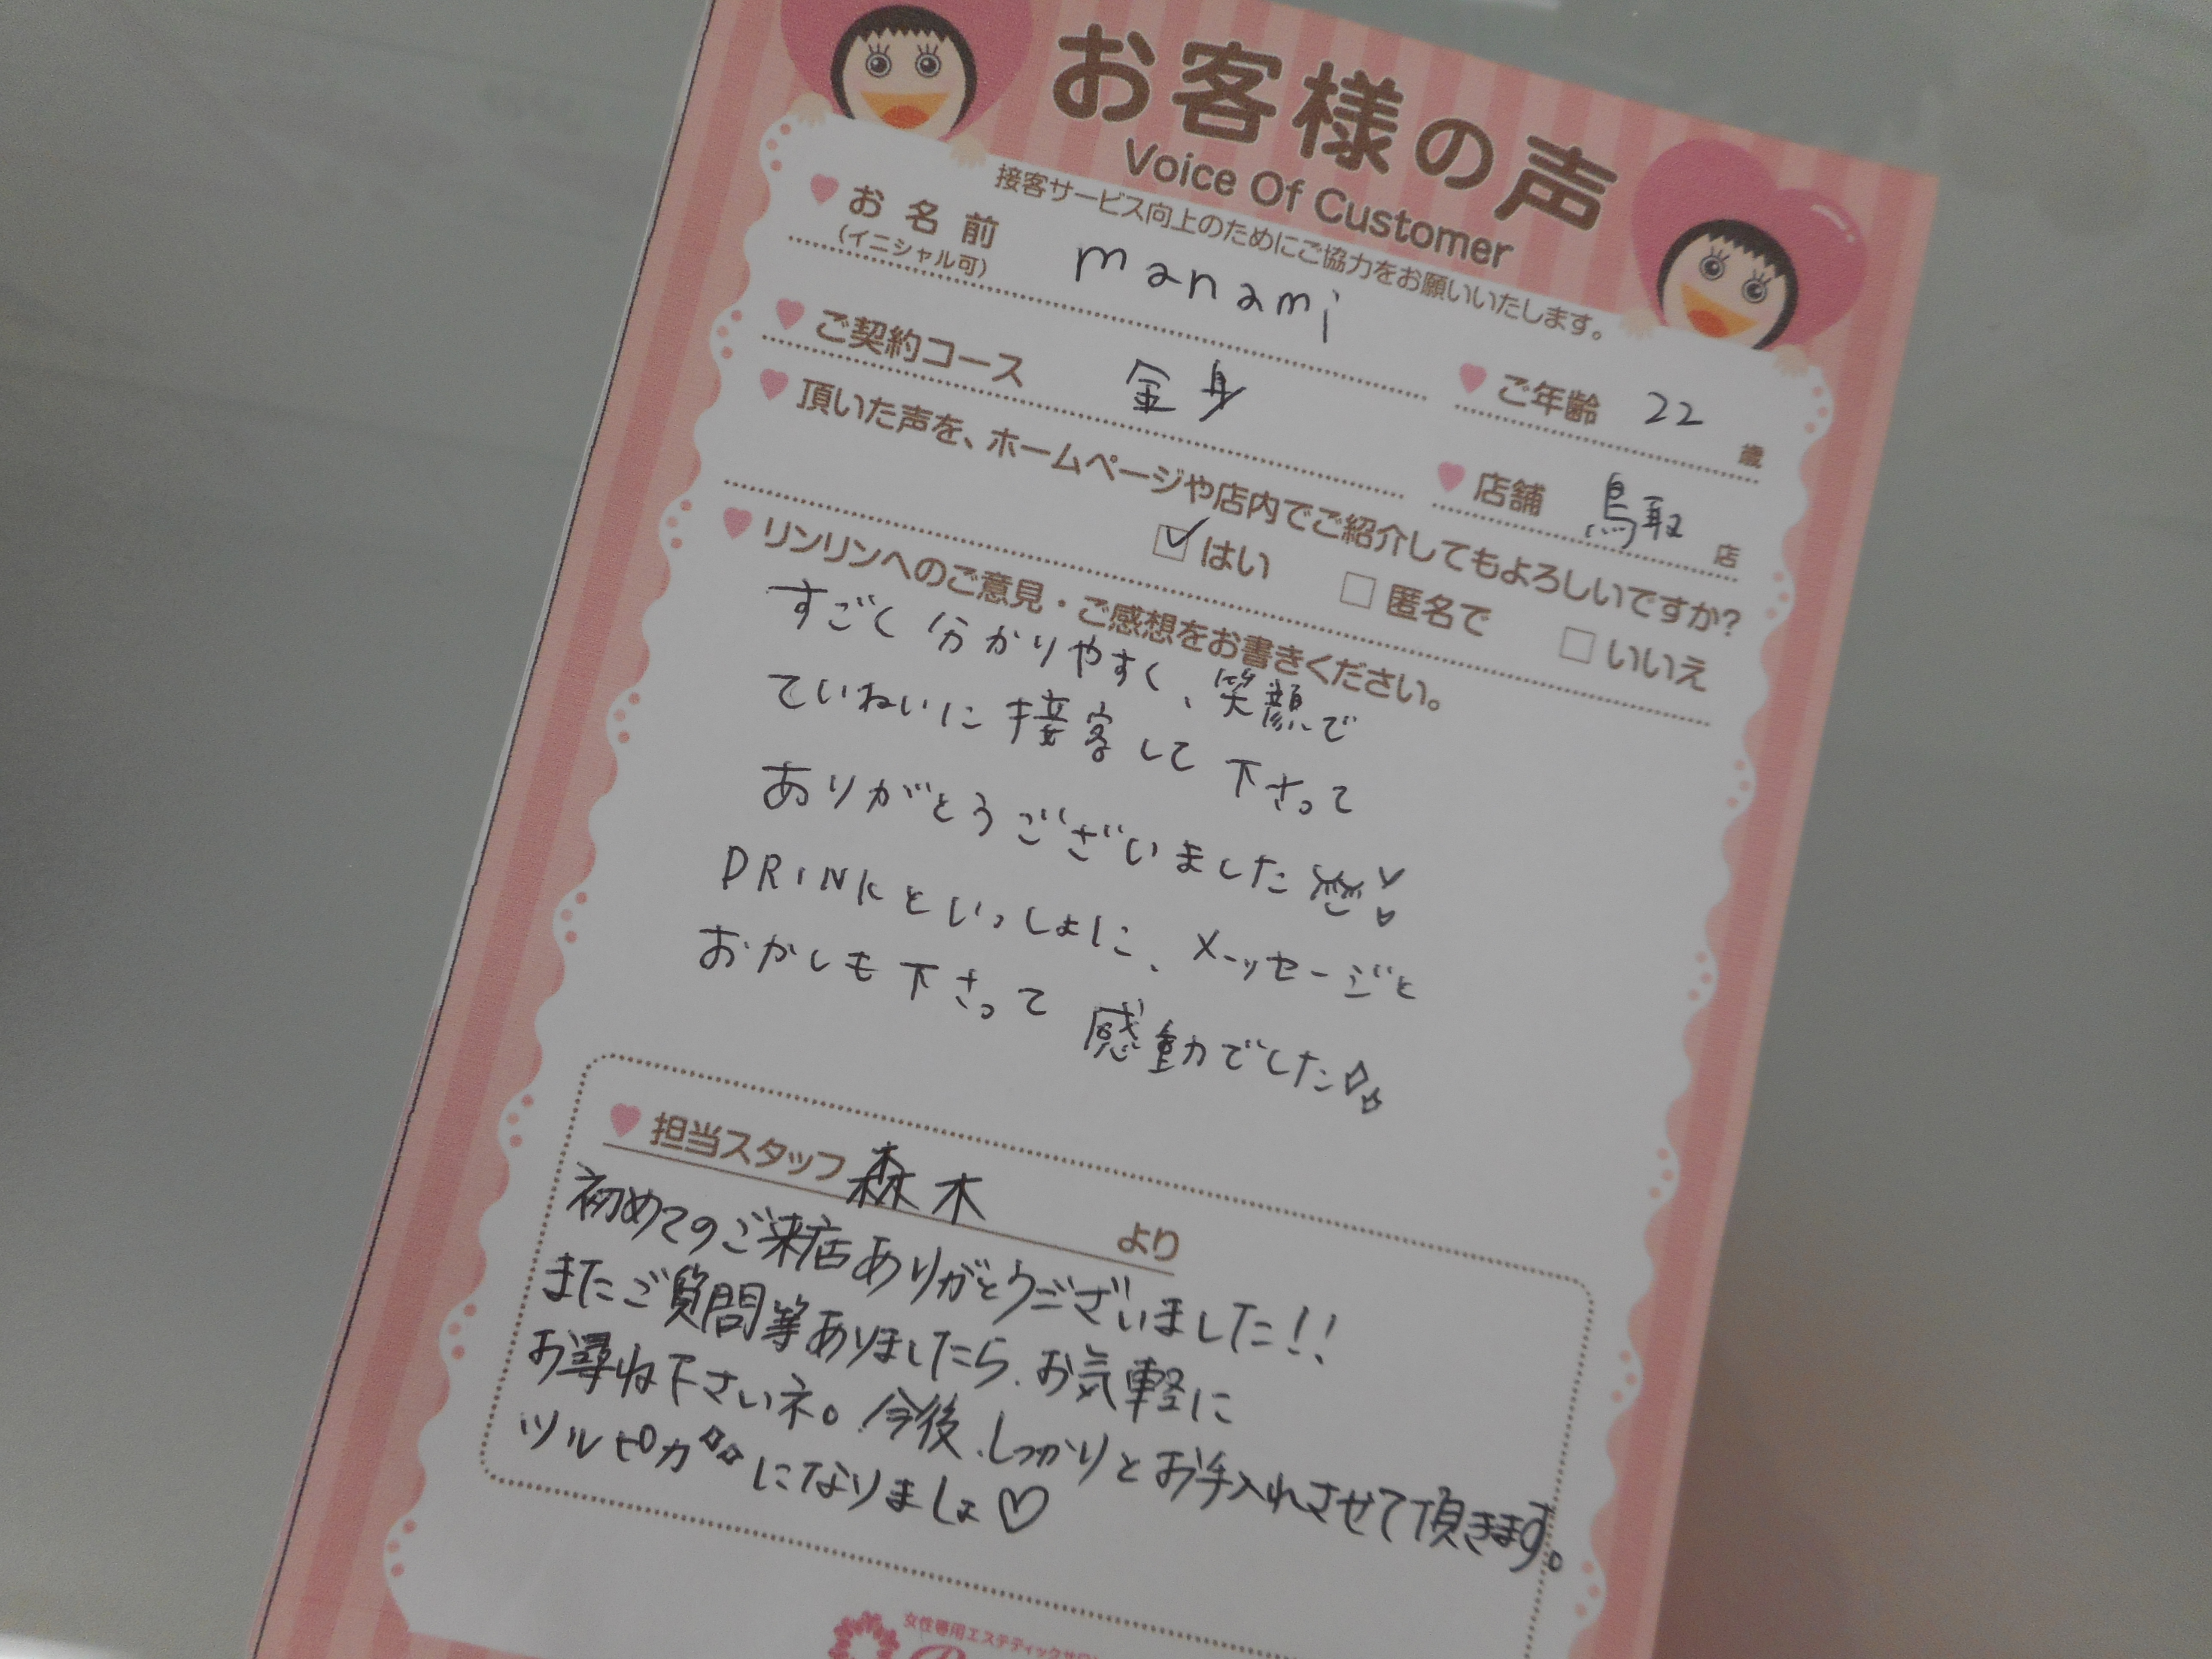 お客様の声
Voice Of Customer
接客サービス向上のためにご協力をお願いいたします。
お名前 manami
(イニシャル可)
ご年齢 22 歳
ご契約コース 全身
店舗 鳥取 店
頂いた声を、ホームページや店内でご紹介してもよろしいですか?
はい 匿名で いいえ
リンリンへのご意見・ご感想をお書きください。
すごく分かりやすく、笑顔で
ていねいに接客して下さって
ありがとうございました
DRINKといっしょに、メッセージと
おかしも下さって感動でした
担当スタッフ 森木 より
初めてのご来店ありがとうございました!!
またご質問等ありましたら、お気軽に
お尋ね下さいネ。今後、しっかりとお手入れさせて頂きます。
ツルピカになりましょ♡
女性専用エステティックサロン